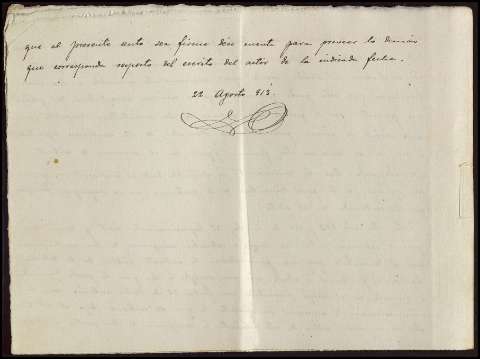 que el presente auto sea firme dése cuenta para proveer lo demás
que corresponda respecto del escrito del actor de la indicada fecha.
22 Agosto 913.